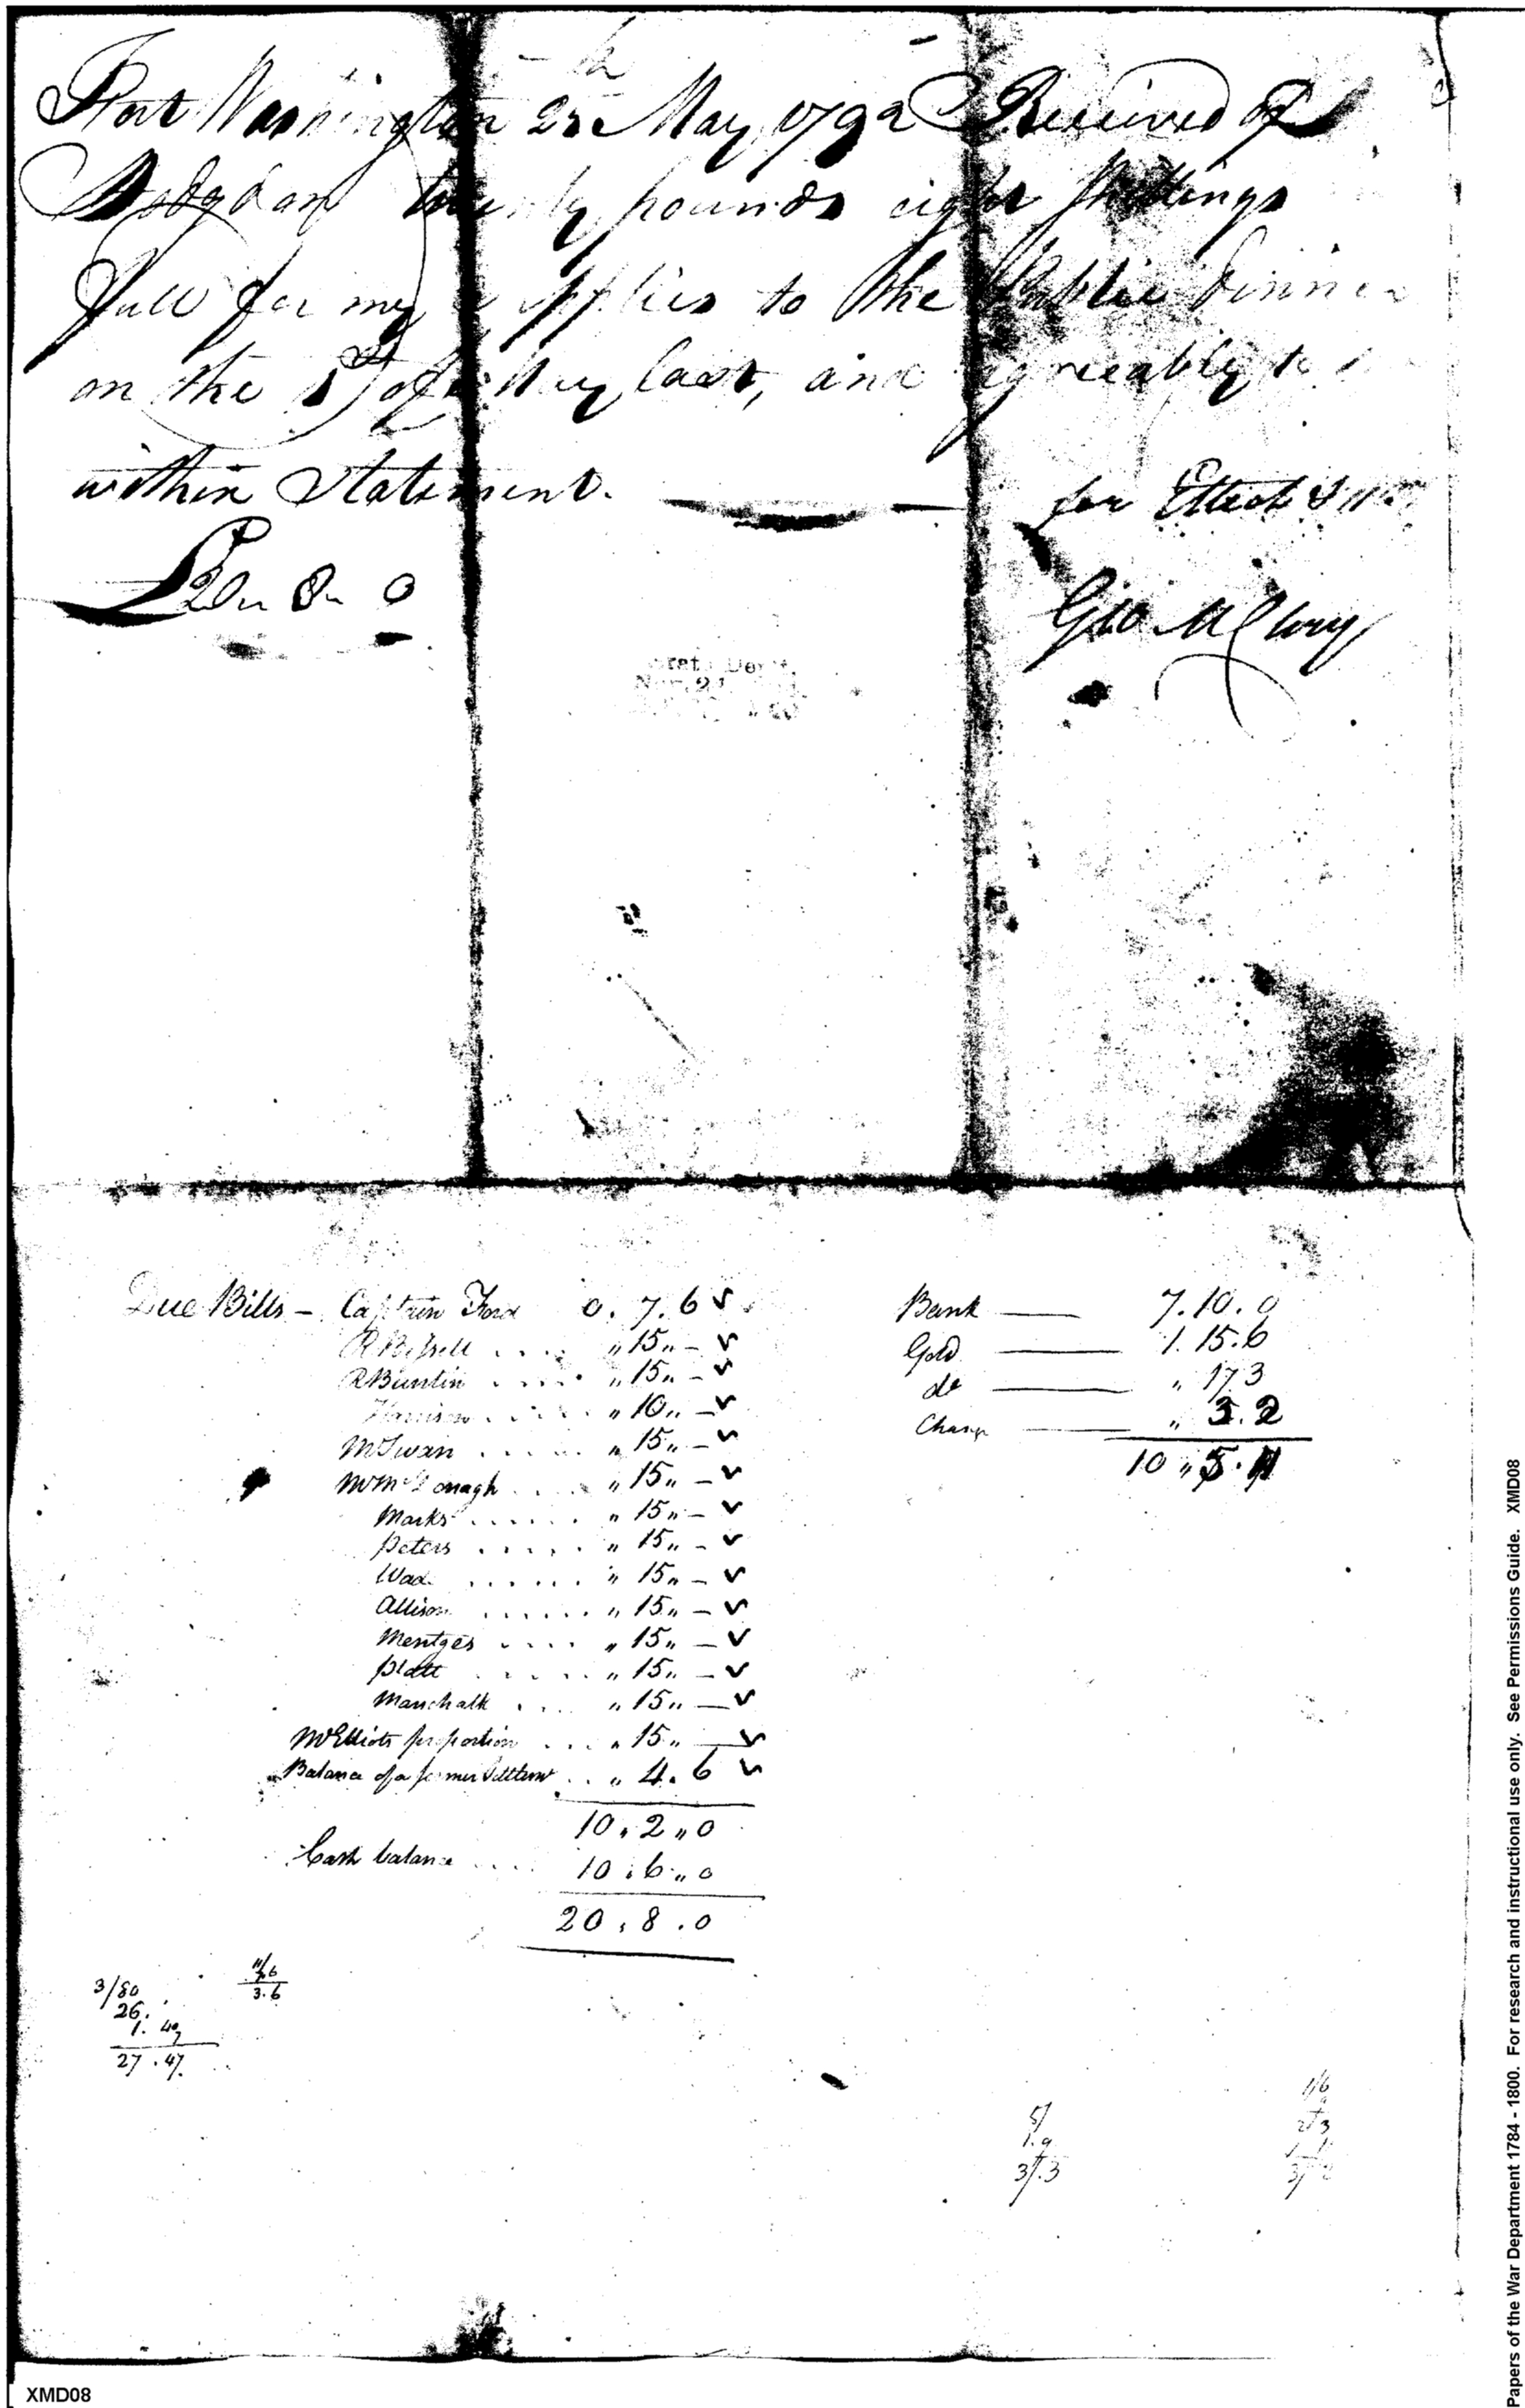 Fort Washington 23d May 1792 Received of
Hodgdon twenty pounds eight shillings
full for my supplies to the Public dinner
on the 1st of May last, and agreeably to
within Statement.
for Elliott &
£20 " 8 " 0
Geo McClury
Due Bills — Captain Ford 0. 7. 6 ✓
R Bissell .... " 15 " — ✓
R Buntin .... " 15 " — ✓
Harrison .... " 10 " — ✓
.... " 15 " — ✓
.... " 15 " — ✓
Marks ...... " 15 " — ✓
Peters ..... " 15 " — ✓
Wade ...... " 15 " — ✓
Allison ...... " 15 " — ✓
Mentges .... " 15 " — ✓
Platt .... " 15 " — ✓
Marschalk .... " 15 " — ✓
Mr Elliots proportion ... " 15 " — ✓
Balance of a former Settlemt .. " 4. 6 ✓
10 " 2 " 0
Cash balance .... 10 " 6 " 0
20 " 8 . 0
Bank —— 7. 10. 0
Gold —— 1. 15. 6
do —— " 17 3
Change —— " 3. 2
10 " 5. 11
3/80
26.
1. 47
27 . 47
3.6
5/
1.9
3/.3
1/6
2/3
Papers of the War Department 1784 - 1800. For research and instructional use only. See Permissions Guide. XMD08
XMD08